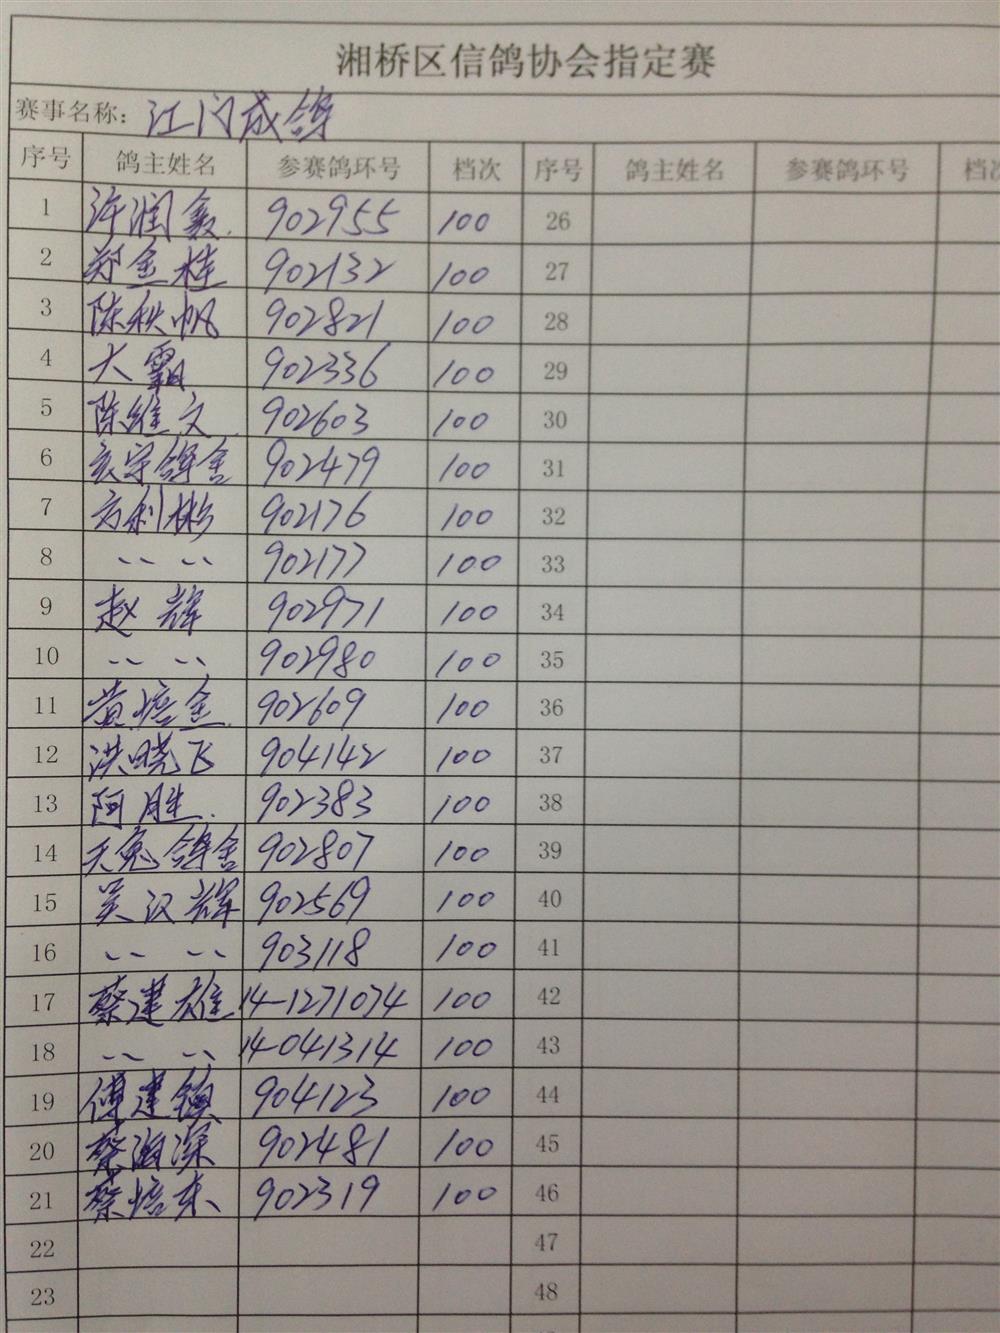 湘桥区信鸽协会指定赛
赛事名称: 江门成鸽
序号 鸽主姓名 参赛鸽环号 档次 序号 鸽主姓名 参赛鸽环号
1 许润鑫. 902955 100 26
2 郑金桂 902132 100 27
3 陈秋帆 902821 100 28
4 大霸 902336 100 29
5 陈维文 902603 100 30
6 鸽舍 902479 100 31
7 方利彬 902176 100 32
8 、、 、、 902177 100 33
9 赵辉 902971 100 34
10 、、 、、 902980 100 35
11 黄培金. 902609 100 36
12 洪晓飞 904142 100 37
13 阿胜. 902383 100 38
14 天兔鸽舍 902807 100 39
15 吴汉辉 902569 100 40
16 、、 、、 903118 100 41
17 蔡建雄 14-1271074 100 42
18 、、 、、 14-041314 100 43
19 傅建镇 904123 100 44
20 蔡海深 902481 100 45
21 蔡培东 902319 100 46
22 47
23 48